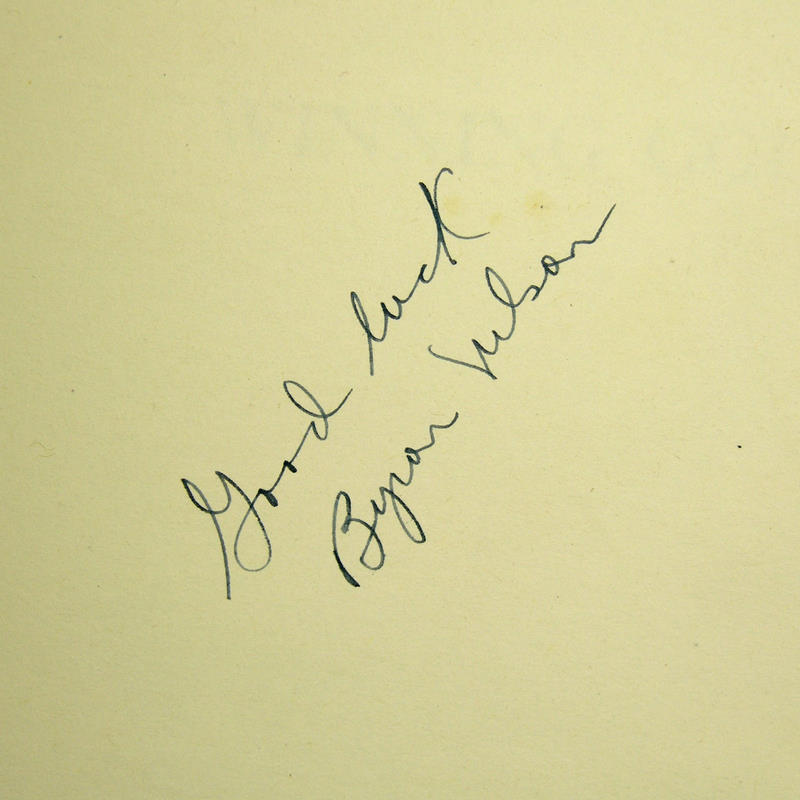 Good luck
Byron Nelson